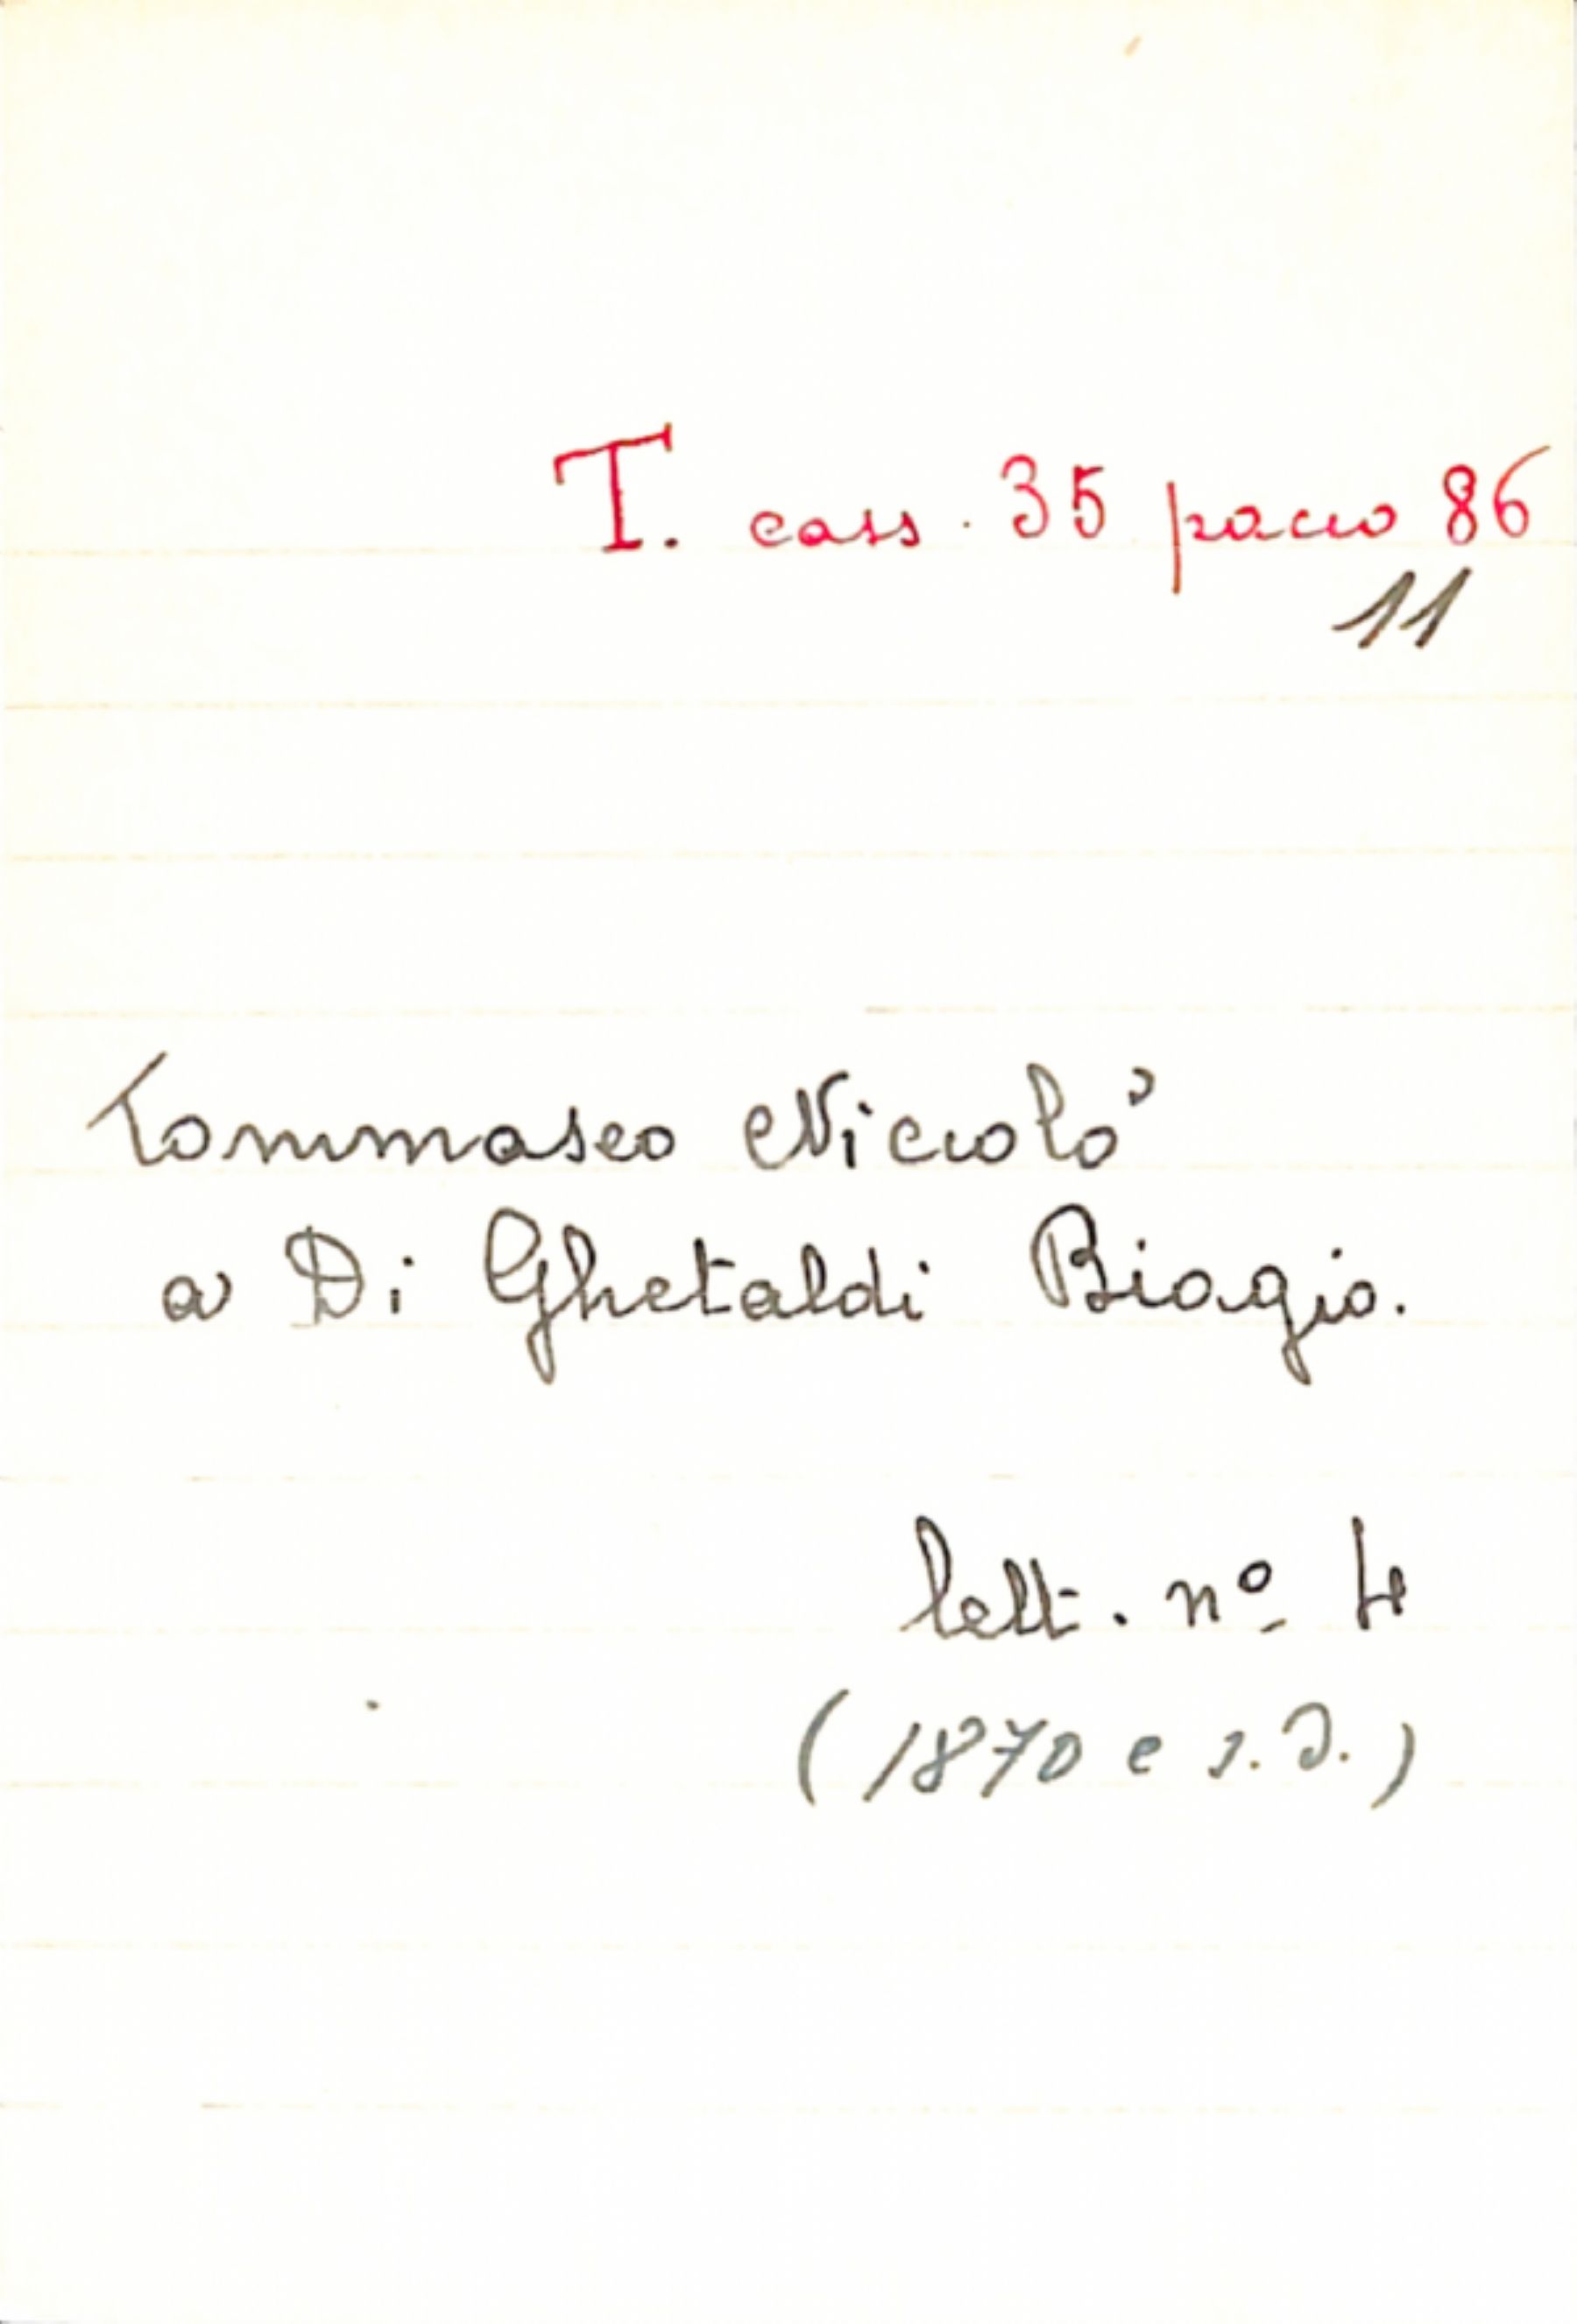 T. cass. 35 pacco 86
11
Tommaseo Niccolò
a Di Ghetaldi Biagio.
lett. nº 4
(1870 e s.d.)